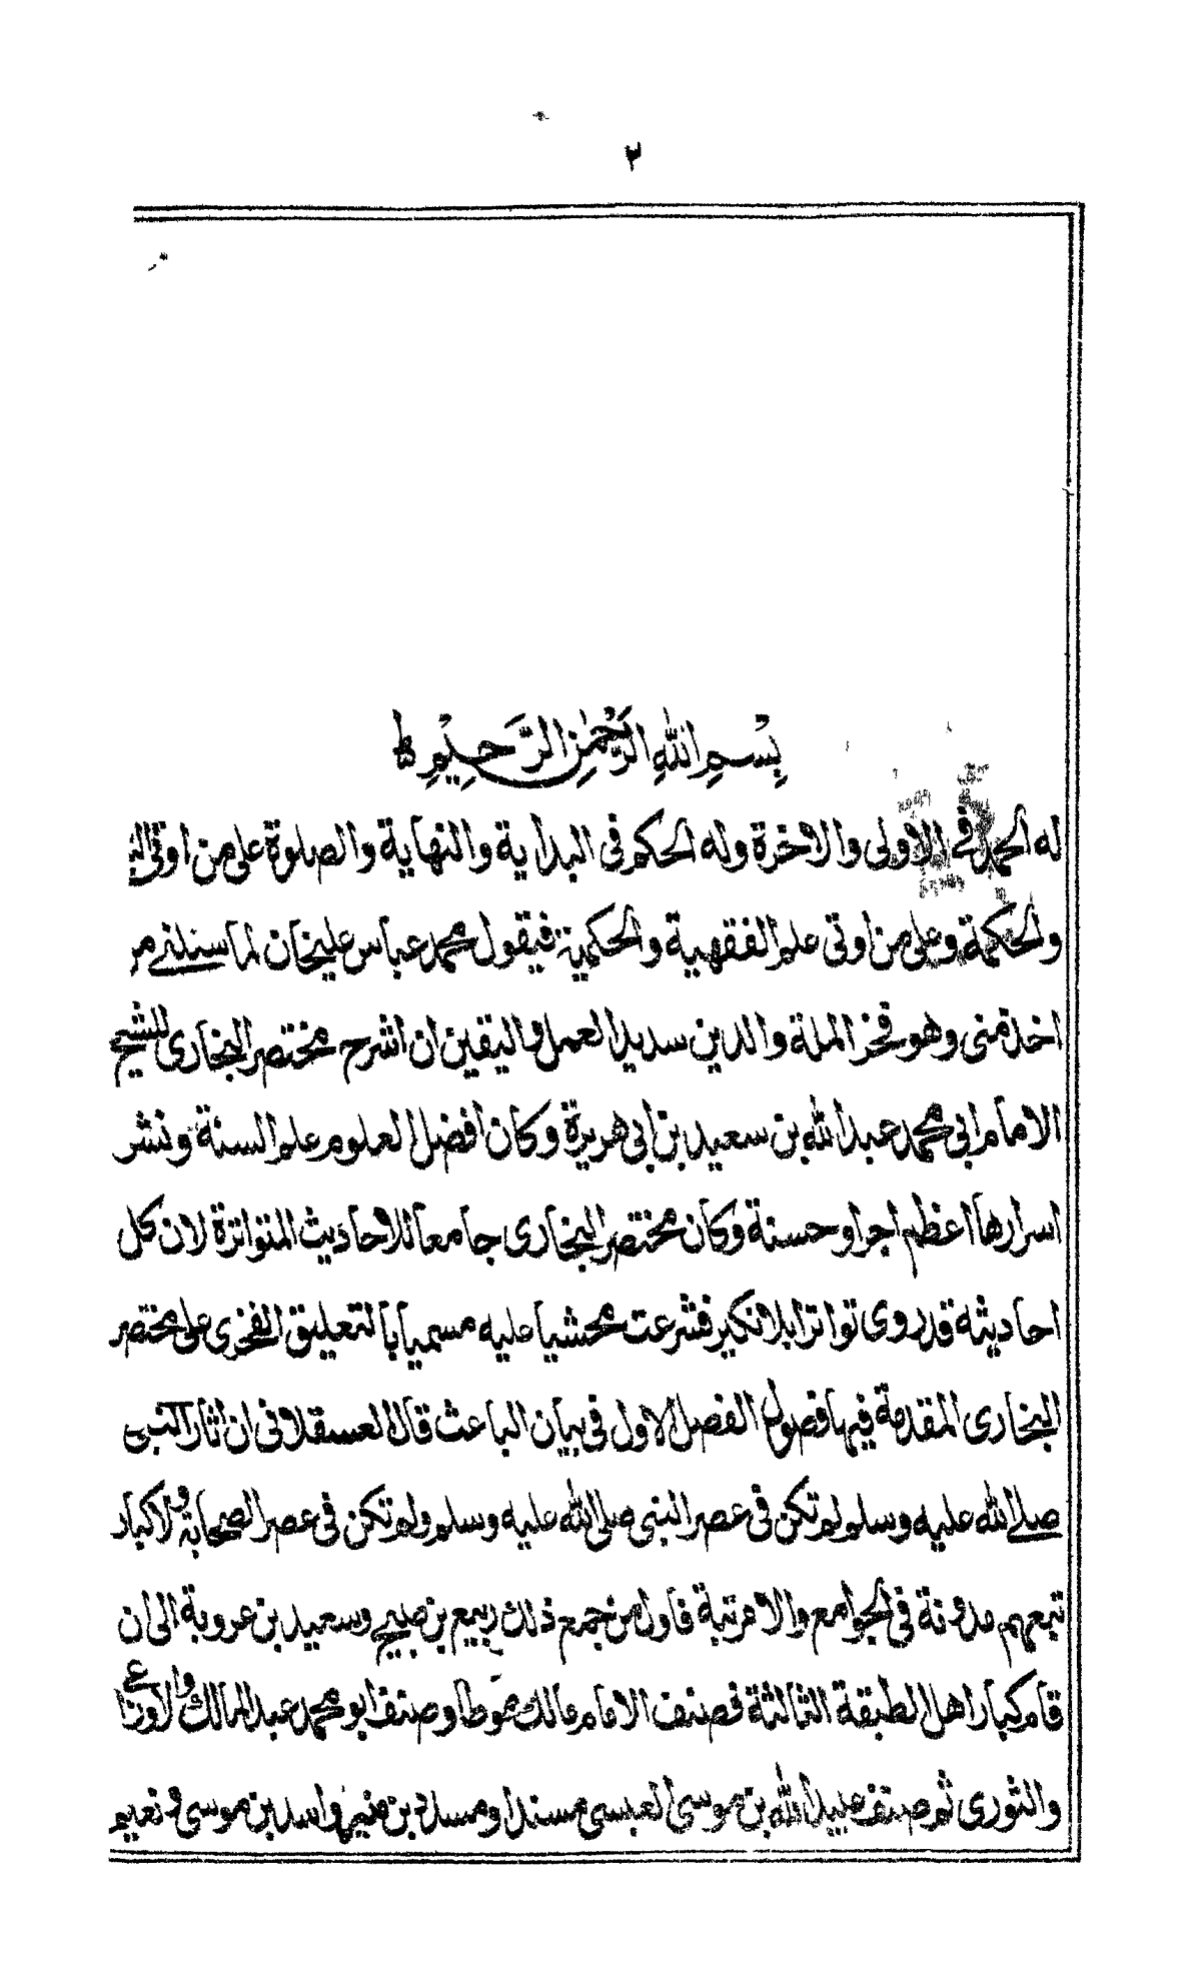 ٢
بِسْمِ اللهِ الرَّحْمٰنِ الرَّحِيْمِ ط
له الحمد في الاولى والاخرة وله الحكم فى البداية والنهاية والصلوة على من اوتى
والحكمة وعلى من اوتى علم الفقهية والحكمية فيقول محمد عباس عليخان لما سئلنے من
اخذ منى وهو فخر الملة والدين سديد العمل واليقين ان اشرح مختصر البخارى للشيخ
الامام ابى محمد عبد الله بن سعيد بن ابى هريرة وكان افضل العلوم علم السنة ونشر
اسرارها اعظم اجرا وحسنة وكان مختصر البخارى جامعا للاحاديث المتواترة لان كل
احاديثة قد روى تواترا بلا نكير فشرعت محشيا عليه مسميا بالتعليق الفخرى على مختصر
البخارى المقدمة فيها فصول الفصل الاول فى بيان الباعث قال العسقلانى ان اثار النبى
صلے الله عليه وسلم لم تكن فى عصر النبى صلى الله عليه وسلم ولم تكن فى عصر الصحابة و لاكبار
تبعهم مدونة فى الجوامع والا مرتبة فاول من جمع ذلك ربيع بن صبيح وسعيد بن عروبة الى ان
قام كبار اهل الطبقة الثالثة فصنف الامام مالك موطا وصنف ابو محمد عبد المالك والاوزاعى
والثورى ثم صنف عبيد الله بن موسى العبسى مسندا ومسدد بن واسد بن موسى و نعيم